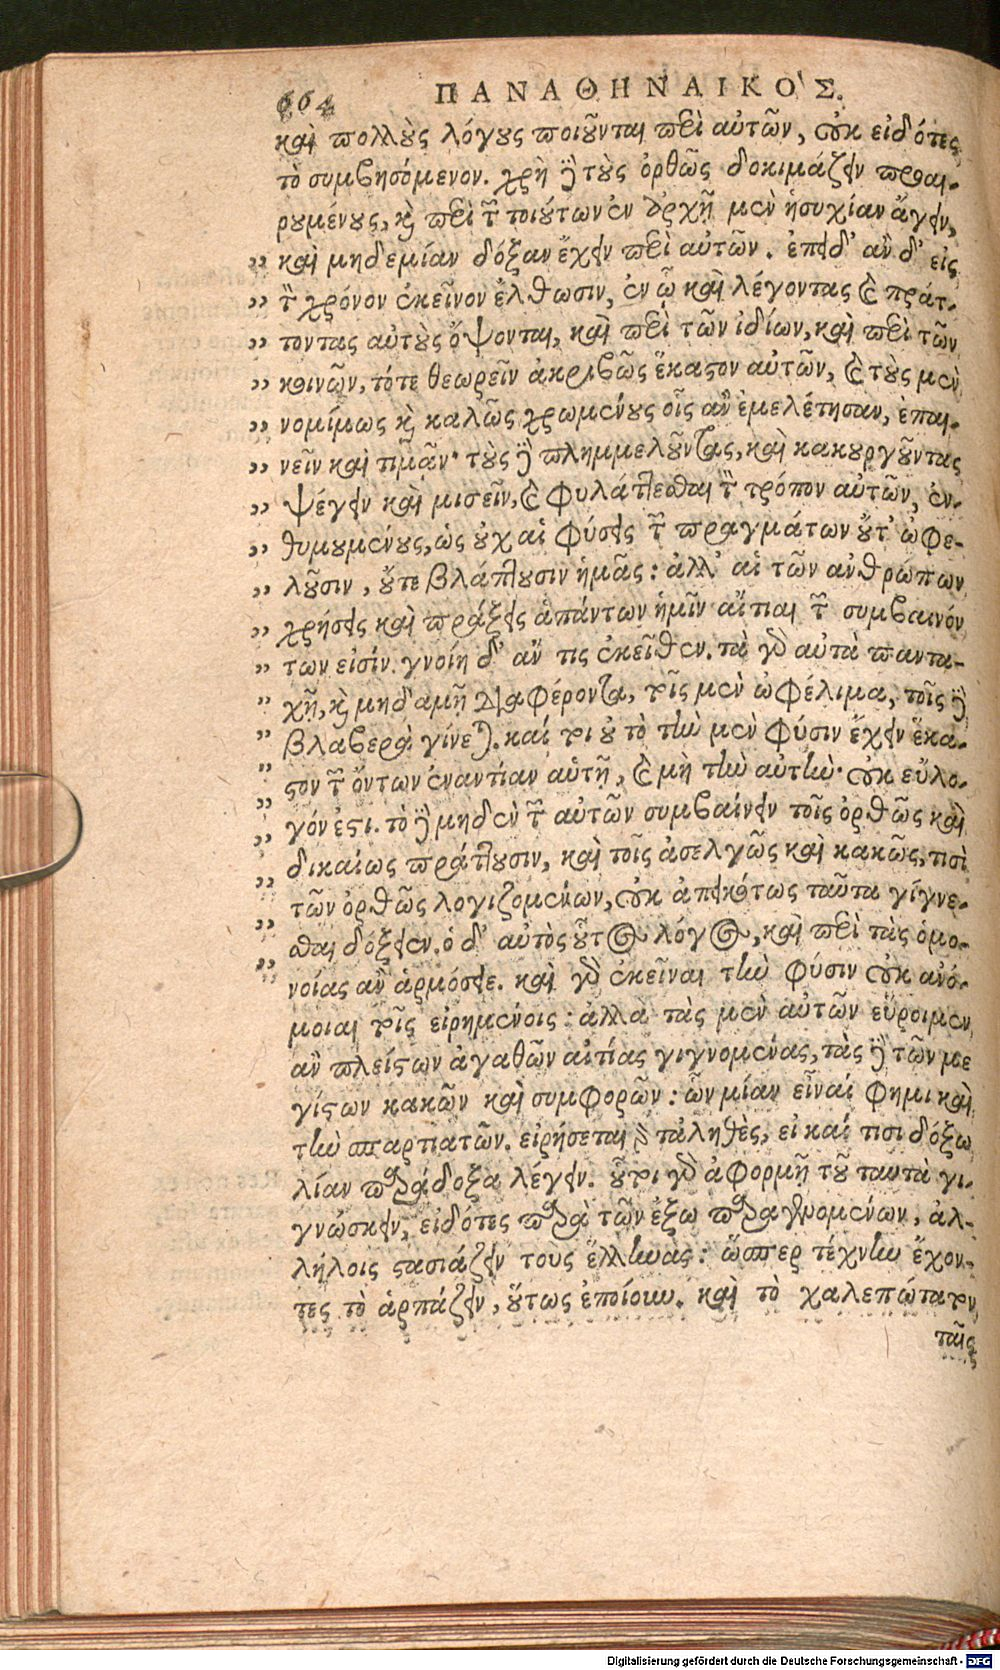 664 ΠΑΝΑΘΗΝΑΙΚΟ'Σ.
καὶ πολλοὺς λόγους ποιοῦνται περὶ αὐτῶν, οὐκ εἰδότες
τὸ συμβησόμενον. χρὴ δὲ τοὺς ὀρθῶς δοκιμάζειν προαι-
ρουμένους, καὶ περὶ τῶν τοιούτων ἐν ἀρχῇ μὲν ἡσυχίαν ἄγειν,
„ καὶ μηδεμίαν δόξαν ἔχειν περὶ αὐτῶν. ἐπειδ' ἂν δ' εἰς
„ τὸν χρόνον ἐκεῖνον ἔλθωσιν, ἐν ᾧ καὶ λέγοντας καὶ πράτ-
„ τοντας αὐτοὺς ὄψονται, καὶ περὶ τῶν ἰδίων, καὶ περὶ τῶν
„ κοινῶν, τότε θεωρεῖν ἀκριβῶς ἕκαστον αὐτῶν, καὶ τοὺς μὲν
„ νομίμως καὶ καλῶς χρωμένους οἷς ἂν ἐμελέτησαν, ἐπαι-
„ νεῖν καὶ τιμᾶν· τοὺς δὲ πλημμελοῦντας, καὶ κακουργοῦντας
„ ψέγειν καὶ μισεῖν, καὶ φυλάττεσθαι τὸν τρόπον αὐτῶν, ἐν-
„ θυμουμένους, ὡς οὐχ αἱ φύσεις τῶν πραγμάτων οὔτ' ὠφε-
„ λοῦσιν, οὔτε βλάπτουσιν ἡμᾶς: ἀλλ' αἱ τῶν ἀνθρώπων
„ χρήσεις καὶ πράξεις ἁπάντων ἡμῖν αἴτιαι τῶν συμβαινόν
„ των εἰσίν. γνοίη δ' ἄν τις ἐκεῖθεν. τὰ γὰρ αὐτὰ παντα-
„ χῇ, καὶ μηδαμῇ διαφέροντα, τοῖς μὲν ὠφέλιμα, τοῖς δὲ
„ βλαβερὰ γίνεται. καί τοι οὐ τὸ τὴν μὲν φύσιν ἔχειν ἕκα-
„ στον τῶν ὄντων ἐναντίαν αὑτῇ, καὶ μὴ τὴν αὐτὴν· οὐκ εὔλο-
„ γόν ἐστι. τὸ δὲ μηδὲν τῶν αὐτῶν συμβαίνειν τοῖς ὀρθῶς καὶ
„ δικαίως πράττουσιν, καὶ τοῖς ἀσελγῶς καὶ κακῶς, τισὶ
„ τῶν ὀρθῶς λογιζομένων, οὐκ ἀπεικότως ταῦτα γίγνε-
„ σθαι δόξειεν. ὁ δ' αὐτὸς οὗτος λόγος, καὶ περὶ τὰς ὁμο-
„ νοίας ἂν ἁρμόσειε. καὶ γὰρ ἐκεῖναι τὴν φύσιν οὐκ ἀνό-
μοιαι τοῖς εἰρημένοις: ἀλλὰ τὰς μὲν αὐτῶν εὕροιμεν
ἂν πλείστων ἀγαθῶν αἰτίας γιγνομένας, τὰς δὲ τῶν με
γίστων κακῶν καὶ συμφορῶν: ὧν μίαν εἶναί φημι καὶ
τὴν σπαρτιατῶν. εἰρήσεται γὰρ τἀληθὲς, εἰ καί τισι δόξω
λίαν παράδοξα λέγειν. οὗτοι γὰρ ἀφορμῇ τοῦ ταυτὰ γι-
γνώσκειν, εἰδότες παρὰ τῶν ἔξω παραγενομένων, ἀλ-
λήλοις στασιάζειν τους ἕλληνας: ὥσπερ τέχνην ἔχον-
τες τὸ ἁρπάζειν, οὕτως ἐποίουν. καὶ τὸ χαλεπώτατον
ταῖς